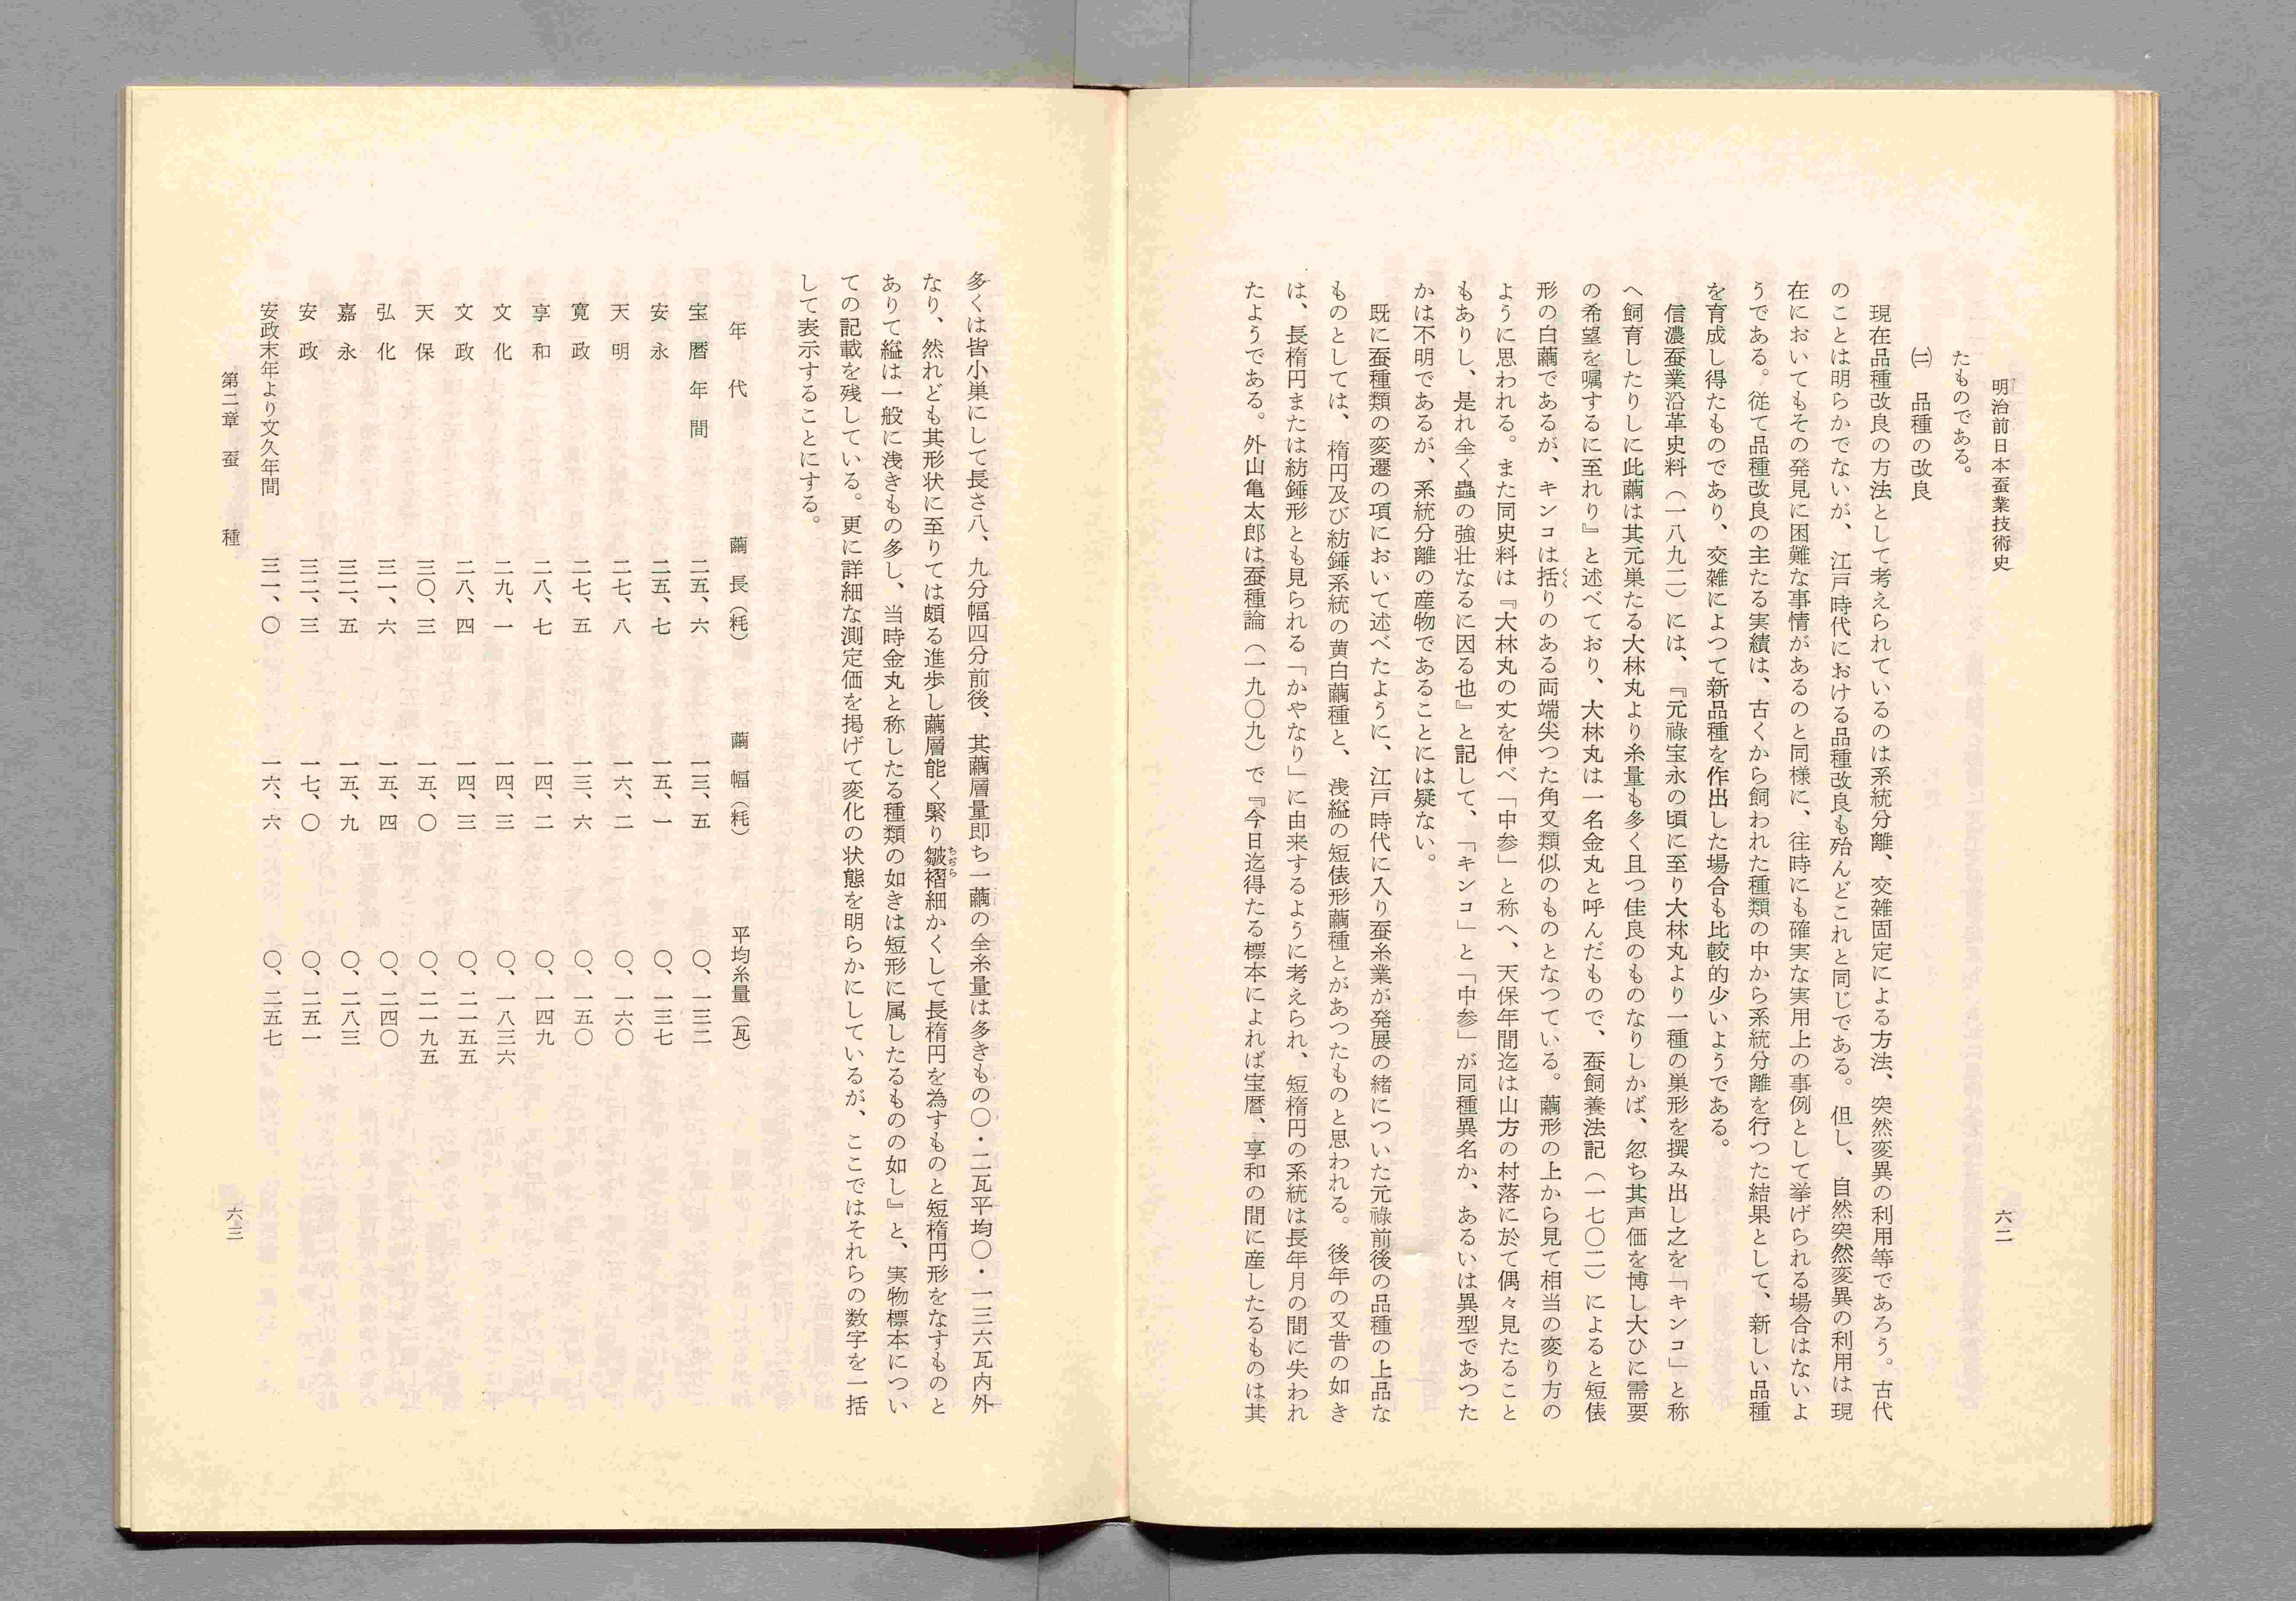 明治前日本蚕業技術史
六二
たものである。
㈡　品種の改良
現在品種改良の方法として考えられているのは系統分離、交雑固定による方法、突然変異の利用等であろう。古代
のことは明らかでないが、江戸時代における品種改良も殆んどこれと同じである。但し、自然突然変異の利用は現
在においてもその発見に困難な事情があるのと同様に、往時にも確実な実用上の事例として挙げられる場合はないよ
うである。従て品種改良の主たる実績は、古くから飼われた種類の中から系統分離を行つた結果として、新しい品種
を育成し得たものであり、交雑によつて新品種を作出した場合も比較的少いようである。
信濃蚕業沿革史料（一八九二）には、『元祿宝永の頃に至り大林丸より一種の巣形を撰み出し之を「キンコ」と称
へ飼育したりしに此繭は其元巣たる大林丸より糸量も多く且つ佳良のものなりしかば、忽ち其声価を博し大ひに需要
の希望を嘱するに至れり』と述べており、大林丸は一名金丸と呼んだもので、蚕飼養法記（一七〇二）によると短俵
形の白繭であるが、キンコは括りのある両端尖つた角又類似のものとなつている。繭形の上から見て相当の変り方の
ように思われる。また同史料は『大林丸の丈を伸べ「中参」と称へ、天保年間迄は山方の村落に於て偶々見たること
もありし、是れ全く蟲の強壮なるに因る也』と記して、「キンコ」と「中参」が同種異名か、あるいは異型であつた
かは不明であるが、系統分離の産物であることには疑ない。
既に蚕種類の変遷の項において述べたように、江戸時代に入り蚕糸業が発展の緒についた元祿前後の品種の上品な
ものとしては、楕円及び紡錘系統の黄白繭種と、浅縊の短俵形繭種とがあつたものと思われる。後年の又昔の如き
は、長楕円または紡錘形とも見られる「かやなり」に由来するように考えられ、短楕円の系統は長年月の間に失われ
たようである。外山亀太郎は蚕種論（一九〇九）で『今日迄得たる標本によれば宝暦、享和の間に産したるものは其
多くは皆小巣にして長さ八、九分幅四分前後、其繭層量即ち一繭の全糸量は多きもの〇・二瓦平均〇・一三六瓦内外
なり、然れども其形状に至りては頗る進歩し繭層能く緊り皺褶細かくして長楕円を為すものと短楕円形をなすものと
ありて縊は一般に浅きもの多し、当時金丸と称したる種類の如きは短形に属したるものの如し』と、実物標本につい
ての記載を残している。更に詳細な測定価を掲げて変化の状態を明らかにしているが、ここではそれらの数字を一括
して表示することにする。
年代　繭長（粍）　繭幅（粍）　平均糸量（瓦）
宝暦年間　二五、六　一三、五　〇、一三二
安永　二五、七　一五、一　〇、一三七
天明　二七、八　一六、二　〇、一六〇
寛政　二七、五　一三、六　〇、一五〇
享和　二八、七　一四、二　〇、一四九
文化　二九、一　一四、三　〇、一八三六
文政　二八、四　一四、三　〇、二一五五
天保　三〇、三　一五、〇　〇、二一九五
弘化　三一、六　一五、四　〇、二四〇
嘉永　三二、五　一五、九　〇、二八三
安政　三二、三　一七、〇　〇、二五一
安政末年より文久年間　三一、〇　一六、六　〇、二五七
第二章　蚕種
六三